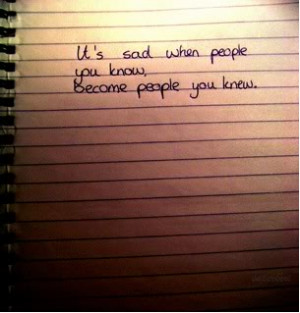 It's sad when people
you know,
Become people you knew.